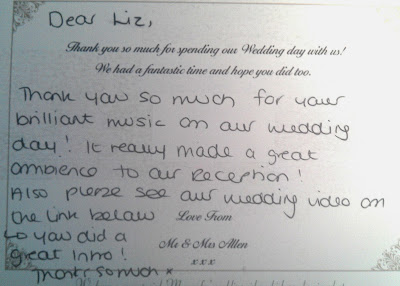 Dear Liz,
Thank you so much for spending our Wedding day with us!
We had a fantastic time and hope you did too.
Thank you so much for your
brilliant music on our wedding
day! It really made a great
ambience to our reception!
Also please see our wedding video on
the link below Love From
↳ you did a
great Intro! Mr & Mrs Allen
Thanks so much x x x x